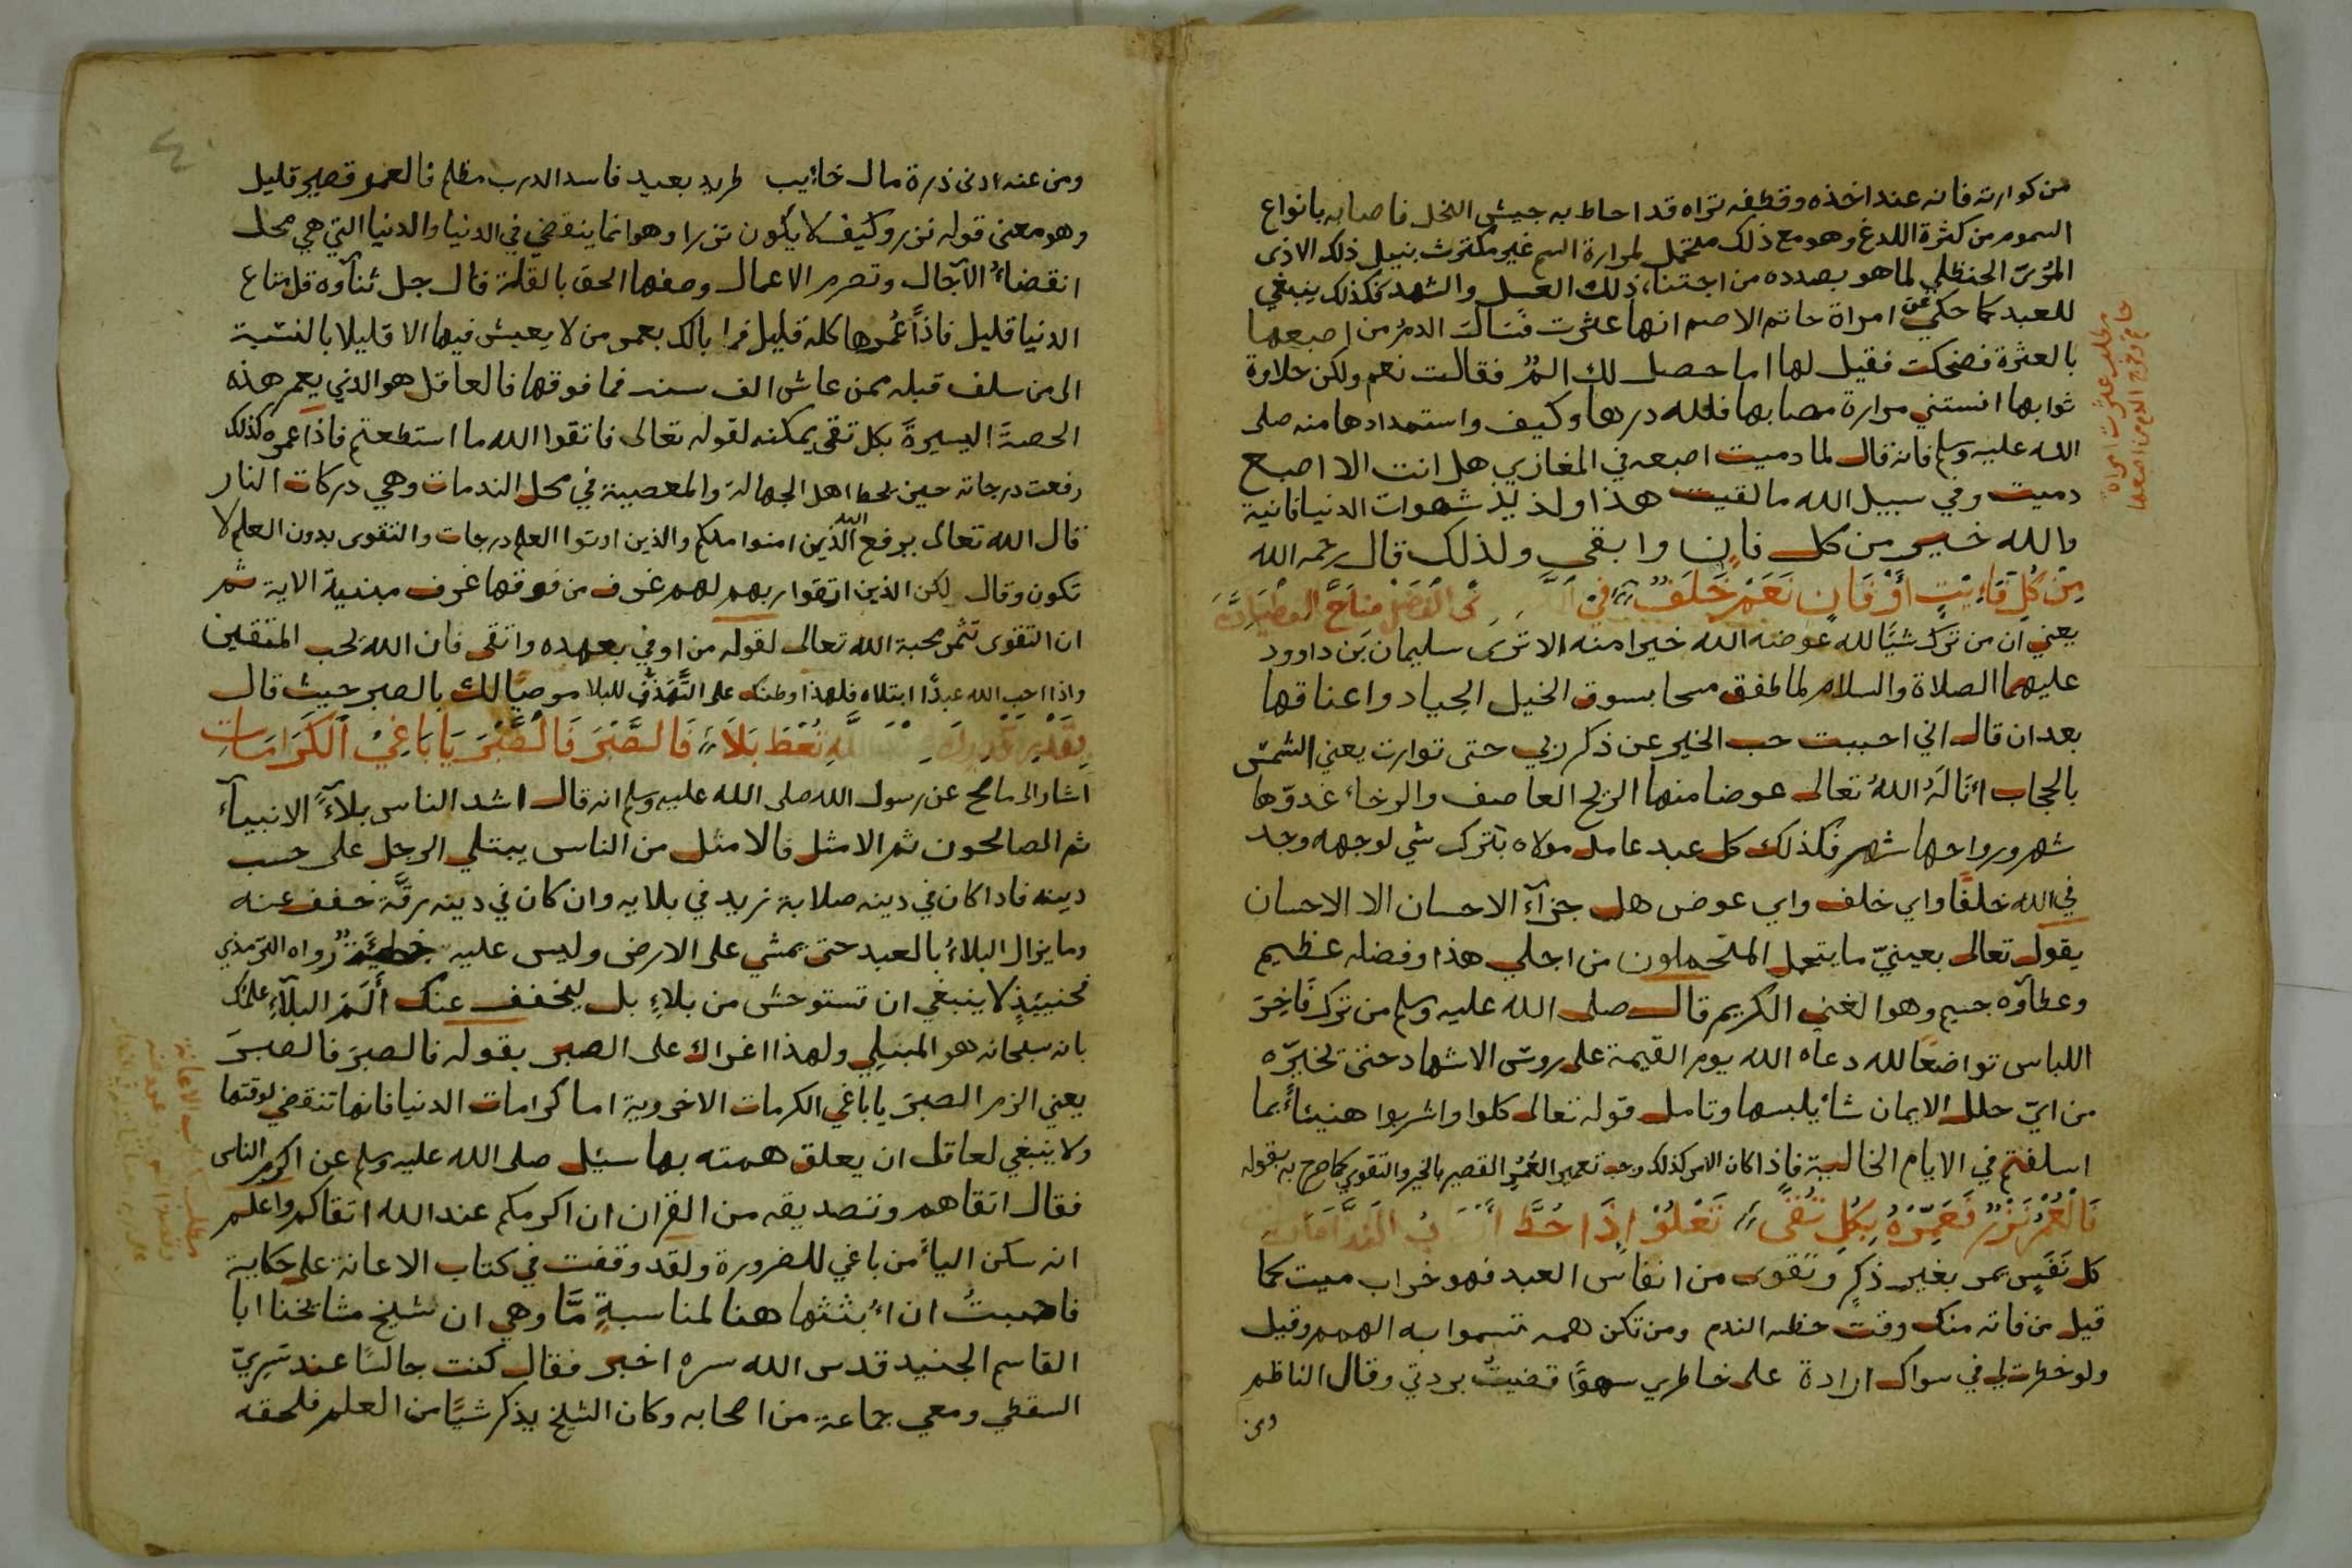 من كوارته فانه عند اخذه وقطفه تراه قد احاط به جيش النحل فاصابه بانواع
السموم من كثرة اللدغ وهو مع ذلك متحمل لمرارة السم غير مكترث بنيل ذلك الاذى
الحنظلي لما هو بصدده من اجتناء ذلك العسل والشهد فكذلك ينبغي
للعبد كما حكي عن امراة حاتم الاصم انها عثرت فسالت الدم من اصبعها
بالعثرة فضحكت فقيل لها اما حصل لك الم فقالت نعم ولكن حلاوة
ثوابها انستني مرارة مصابها فلله درها وكيف واستمدادها منه صلى
الله عليه وسلم فانه قال لما دميت اصبعه في المغازي هل انت الا اصبع
دميت وفي سبيل الله ما لقيت هذا ولذيذ شهوات الدنيا فانية
والله خير من كل فان وابقى ولذلك قال رحمه الله
مِنْ كُلِّ فَائِتٍ أَوْ فَانٍ نَعَمْ خَلَفٌ في
يعني ان من ترك شيًا لله عوضه الله خيرا منه الا ترى سليمان بن داوود
عليهما الصلاة والسلام لما طفق مسحا بسوق الخيل الجياد واعناقها
بعد ان قال اني احببت حب الخير عن ذكر ربي حتى توارت يعني الشمس
بالحجاب انَالَهُ اللهُ تعالى عوضا منها الريح العاصف والرخاء غدوّها
شهر ورواحها شهر فكذلك كل عبد عامل مولاه بترك شي لوجهه وجد
في الله خلفًا واي خلف واي عوض هل جزآء الاحسان الا الاحسان
يقول تعالى بعينيّ ما يتحمل المتحملون من اجلي هذا وفضله عظيم
وعطآوه جسيم وهو الغني الكريم قال صلى الله عليه وسلم من ترك فَاخِرَ
اللباس تواضعًا لله دعاه الله يوم القيمة على روس الاشهاد حتى تخيرّه
من ايّ حلل الايمان شاء يلبسها وتامل قوله تعالى كلوا واشربوا هنيئاً بما
اسلفتم في الايام الخالية فاذا كان الامر كذلك وجب تعمير العُمُرِ القصير بالخير والتقوى كما صرح به بقوله
فَالْعُمْرُ نَزْرٌ فَعَمِّرْهُ بِكُلِّ تُقًى تَعْلُوْ إِذَا حُطَّ
كل نَفَسٍ يمر بغير ذكرٍ وتقوى من انفاس العبد فهو خراب ميت كما
قيل من فاته منك وقت حظه الندم ومن تكن همه تسموا به الهمم وقيل
ولو خطرت لي في سواك ارادة على خاطري سهوًا قضيتُ بردتي وقال الناظم
ومن
مطلب عثرت امراة
حاتم وخرج الدم من اصبعها
ومن عنه ادنى ذرة مال خايب طريد بعيد فاسد الدرب مظلم فالعمر قصير قليل
وهو معنى قوله نزر وكيف لا يكون نزرا وهو انما ينقضي في الدنيا والدنيا التي هي محل
انقضاء الآجال وتصرم الاعمال وصفها الحق بالقلة قال جل ثنآوه قل متاع
الدنيا قليل فاذاً عُمرها كله قليل فما بالك بعمر من لا يعيش فيها الا قليلا بالنسبة
الى من سلف قبله ممن عاش الف سنه فما فوقها فالعاقل هو الذي يعمر هذه
الحصة اليسيرة بكل تقى يمكنه لقوله تعالى فاتقوا الله ما استطعتم فاذا عمره كذلك
رفعت درجاته حين تحط اهل الجهالة والمعصية في محل الندمات وهي دركات النار
قال الله تعالى يرفع الله الذين امنوا منكم والذين اوتوا العلم درجات والتقوى بدون العلم لا
تكون وقال لكن الذين اتقوا ربهم لهم غرف من فوقها غرف مبنية الاية ثم
ان التقوى تثمر محبة الله تعالى لقوله من اوفى بعهده واتقى فان الله يحب المتقين
واذا احب الله عبدًا ابتلاه فلهذا وطنك على للبلا موصيًا لك بالصبر حيث قال
تُعْطَ بَلَاءً فَالصَّبْرَ فَالصَّبْرَ يَا بَاغِيْ الْكَرَامَاتِ
اشار الى ما صح عن رسول الله صلى الله عليه وسلم انه قال اشد الناس بلآءً الانبيآء
ثم الصالحون ثم الامثل فالامثل من الناس يبتلى الرجل على حسب
دينه فاذا كان في دينه صلابة زيد في بلايه وان كان في دينه رقّة خفف عنه
وما يزال البلاءُ بالعبد حتى يمشي على الارض وليس عليه خطيئةٌ رواه الترمذي
فحنييذٍ لا ينبغي ان تستوحش من بلاءٍ بل ليخفف عنك أَلَمَ البلآءِ علمُك
بانه سبحانه هو المبتلي ولهذا اغراك على الصبر بقوله فالصبرَ فالصبرَ
يعني الزم الصبرَ يا باغي الكرمات الاخروية اما كرامات الدنيا فانها تنقضي لوقتها
ولا ينبغي لعاقل ان يعلق همته بها سئل صلى الله عليه وسلم عن اكرم الناس
فقال اتقاهم وتصديقه من القران ان اكرمكم عند الله اتقاكم واعلم
انه سكن الياءَ من باغي للضرورة ولقد وقفت في كتاب الاعانة على حكاية
فاحببتُ ان اُبثثها هنا لمناسبةٍ مَّا وهي ان شيخ مشايخنا ابا
القاسم الجنيد قدس الله سره اخبر فقال كنت جالسًا عند سَرِيّ
السقطي ومعي جماعة من اصحابه وكان الشيخ يذكر شيًا من العلم فلحقه